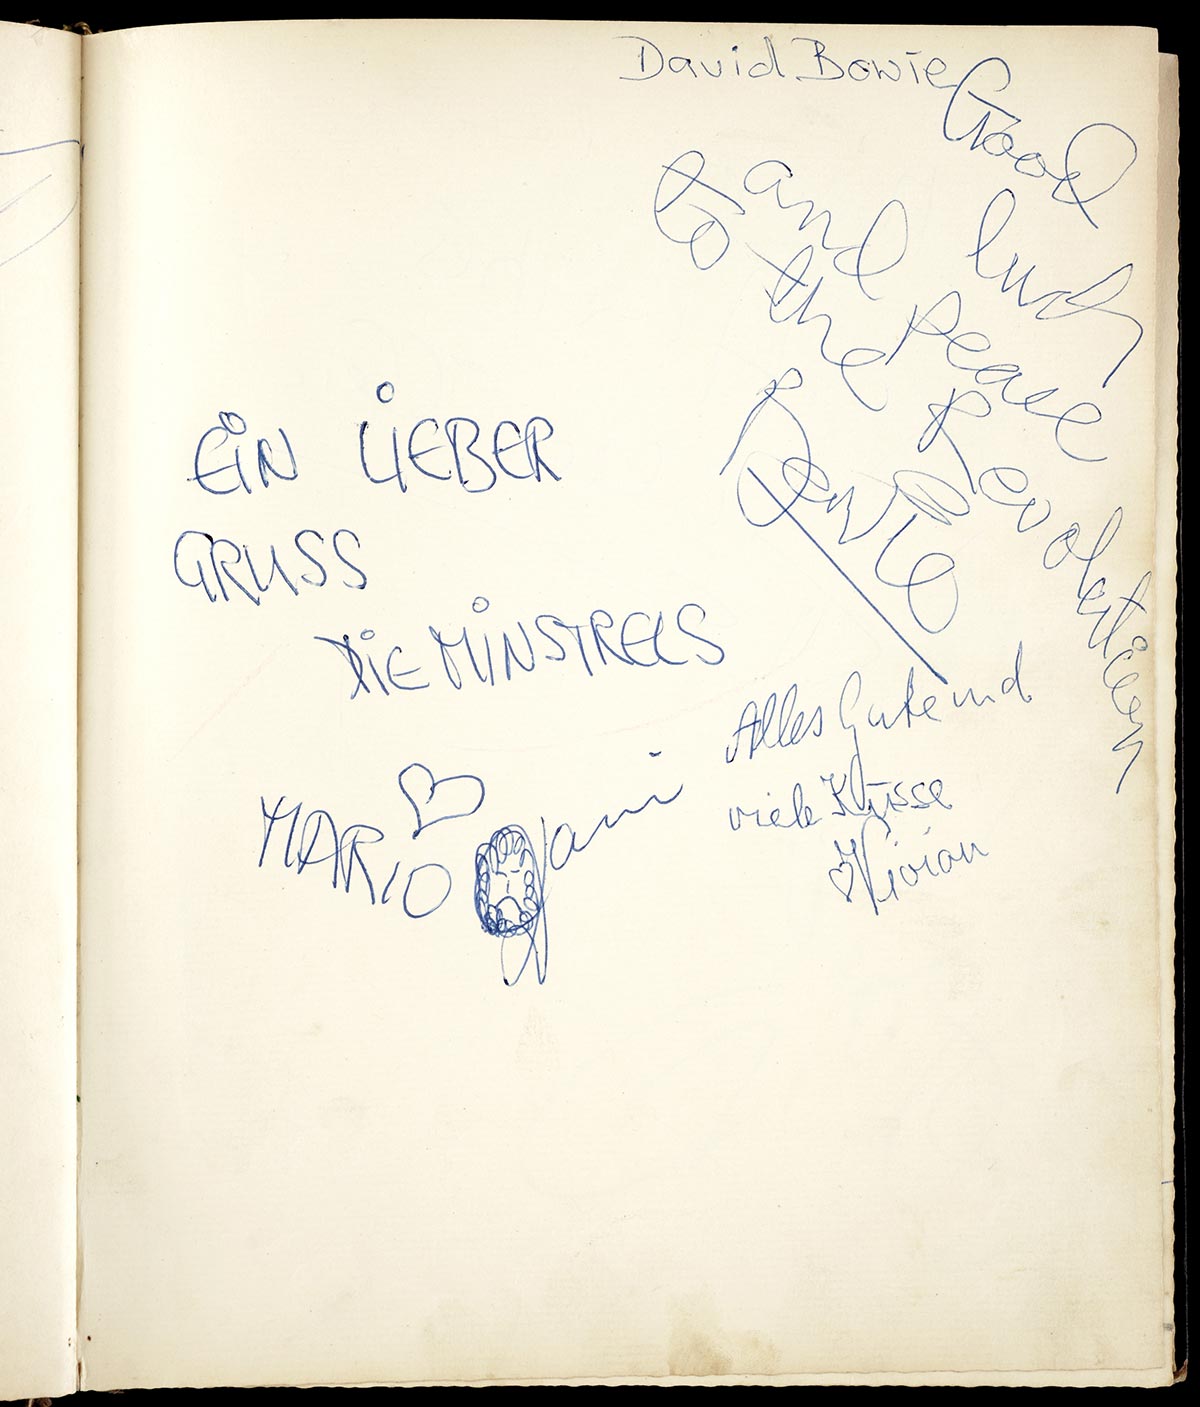 David Bowie
Good
luck
and Pease
to the Revolution
Bowie
EiN LiEBER
GRUSS
DiE MiNSTRELS
MARIO
Alles Gute und
viele Küsse
Vivian